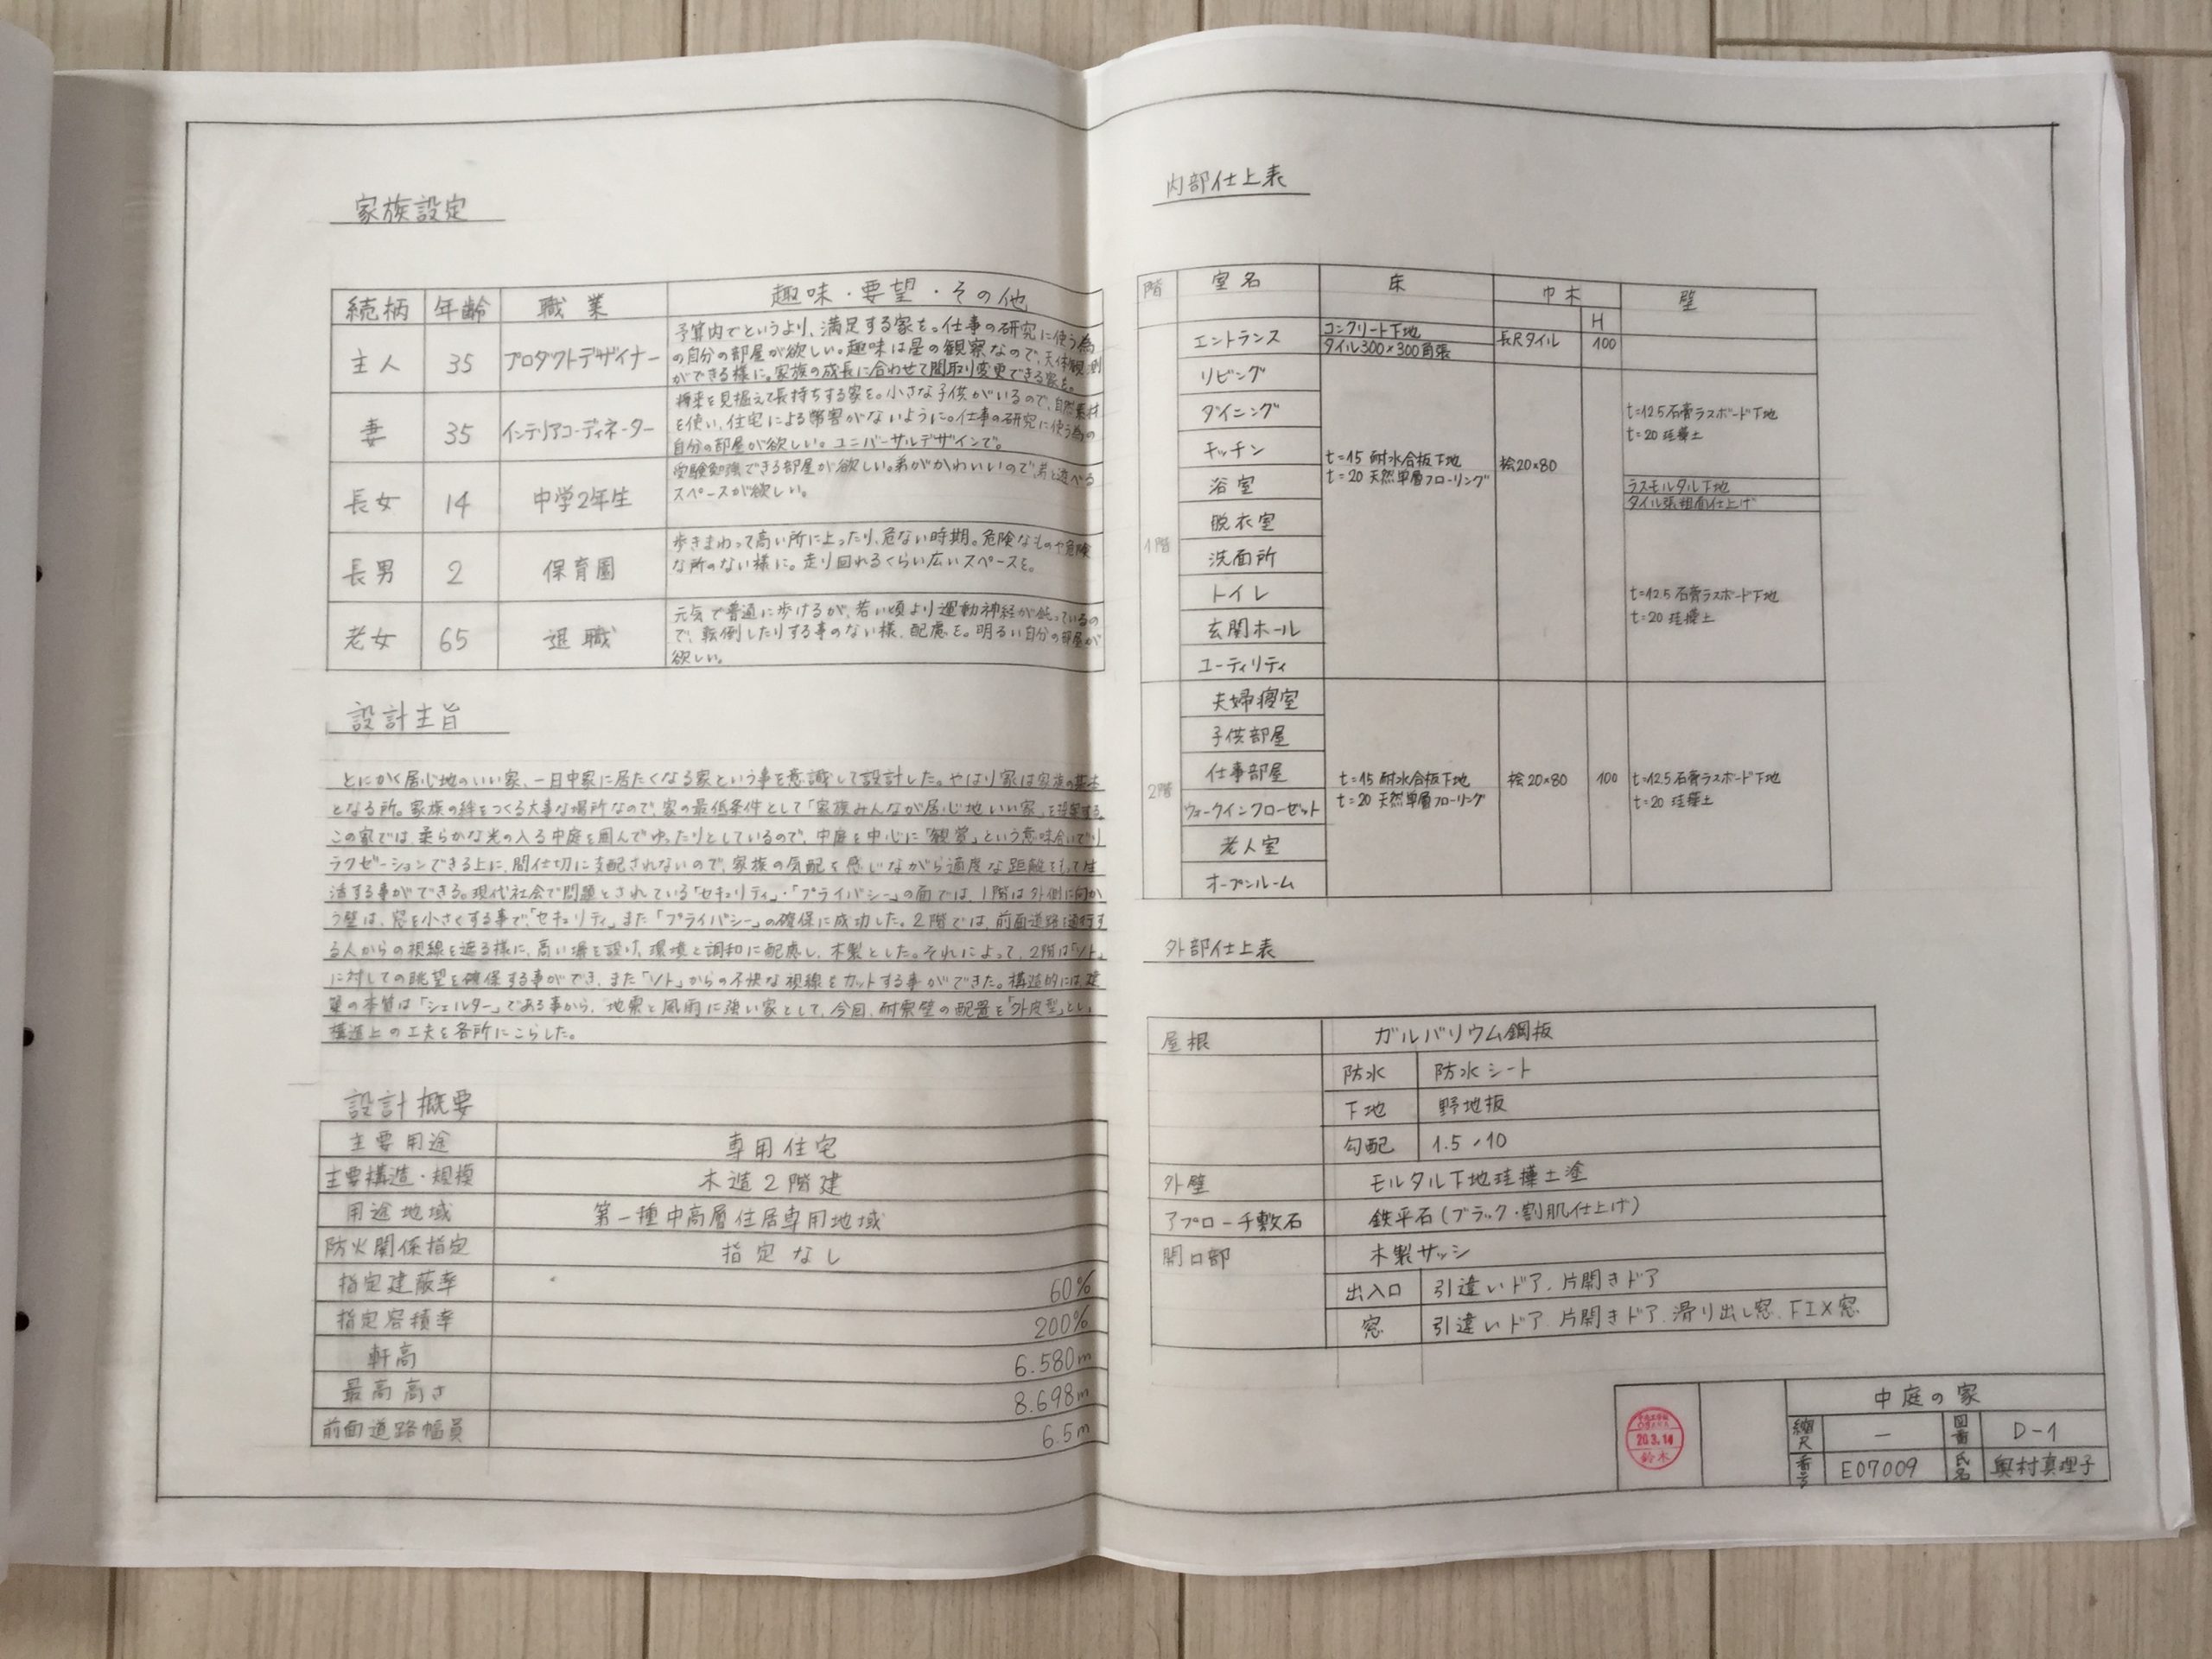 家族設定
続柄 年齢 職業 趣味・要望・その他
主人 35 プロダクトデザイナー
予算内でというより、満足する家を。仕事の研究に使う為
の自分の部屋が欲しい。趣味は星の観察なので、天体観測
ができる様に。家族の成長に合わせて間取り変更できる家を。
妻 35 インテリアコーディネーター
将来を見据えて長持ちする家を。小さな子供がいるので、自然素材
を使い、住宅による弊害がないように。仕事の研究に使う為の
自分の部屋が欲しい。ユニバーサルデザインで。
長女 14 中学2年生
受験勉強できる部屋が欲しい。弟がかわいいので弟と遊べる
スペースが欲しい。
長男 2 保育園
歩きまわって高い所に上ったり、危ない時期。危険なものや危険
な所のない様に。走り回れるくらい広いスペースを。
老女 65 退職
元気で普通に歩けるが、若い頃より運動神経が鈍っているの
で、転倒したりする事のない様、配慮を。明るい自分の部屋が
欲しい。
設計主旨
とにかく居心地のいい家、一日中家に居たくなる家という事を意識して設計した。やはり家は家族の基本
となる所。家族の絆をつくる大事な場所なので、家の最低条件として「家族みんなが居心地いい家」を
この家では、柔らかな光の入る中庭を囲んでゆったりとしているので、中庭を中心に「観賞」という意味合いでリ
ラクゼーションできる上に、間仕切に支配されないので、家族の気配を感じながら適度な距離をもって生
活する事ができる。現代社会で問題とされている「セキュリティ」・「プライバシー」の面では、1階は外側に向か
う壁は、窓を小さくする事で、「セキュリティ」また「プライバシー」の確保に成功した。2階では、前面道路を通行す
る人からの視線を遮る様に、高い塀を設け、環境と調和に配慮し、木製とした。それによって、2階は「ソト」
に対しての眺望を確保する事ができ、また「ソト」からの不快な視線をカットする事ができた。構造的には、建
築の本質は「シェルター」である事から、地震と風雨に強い家として、今回、耐震壁の配置を「外皮型」とし、
構造上の工夫を各所にこらした。
設計概要
主要用途 専用住宅
主要構造・規模 木造2階建
用途地域 第一種中高層住居専用地域
防火関係指定 指定なし
指定建蔽率 60%
指定容積率 200%
軒高 6.580m
最高高さ 8.698m
前面道路幅員 6.5m
内部仕上表
階 室名 床 巾木 H 壁
1階
エントランス コンクリート下地 長尺タイル 100
タイル300×300角張
リビング
ダイニング t=12.5石膏ラスボード下地
t=20 珪藻土
キッチン t=15 耐水合板下地 桧20×80
t=20 天然単層フローリング
浴室 ラスモルタル下地
タイル張粗面仕上げ
脱衣室
洗面所
トイレ t=12.5石膏ラスボード下地
t=20 珪藻土
玄関ホール
ユーティリティ
2階
夫婦寝室
子供部屋
仕事部屋 t=15 耐水合板下地 桧20×80 100 t=12.5石膏ラスボード下地
ウォークインクローゼット t=20 天然単層フローリング t=20 珪藻土
老人室
オープンルーム
外部仕上表
屋根 ガルバリウム鋼板
防水 防水シート
下地 野地板
勾配 1.5/10
外壁 モルタル下地珪藻土塗
アプローチ敷石 鉄平石(ブラック・割肌仕上げ)
開口部 木製サッシ
出入口 引違いドア、片開きドア
窓 引違いドア、片開きドア、滑り出し窓、FIX窓
20.3.14
鈴木
中庭の家
縮尺 ー 図番 D-1
番号 E07009 氏名 奥村真理子